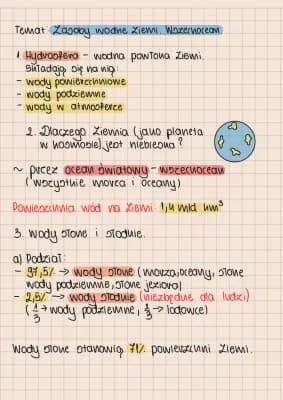 Temat: Zasoby wodne Ziemi. Wszechocean
1 Hydrosfera - wodna powłoka Ziemi.
Składają się na nią:
- wody powierzchniowe
- wody podziemne
- wody w atmosferze
2. Dlaczego Ziemia (jako planeta
w kosmosie) jest niebieska?
~ przez ocean światowy - wszechocean
(wszystkie morza i oceany)
Powierzchnia wód na Ziemi: 1,4 mld km³
3. Wody słone i słodkie.
a) Podział:
- 97,5% → wody słone (morza, oceany, słone
wody podziemne, słone jeziora)
- 2,5% → wody słodkie (niezbędne dla ludzi)
(1/3 → wody podziemne, 2/3 → lodowce)
Wody słone stanowią 71% powierzchni Ziemi.